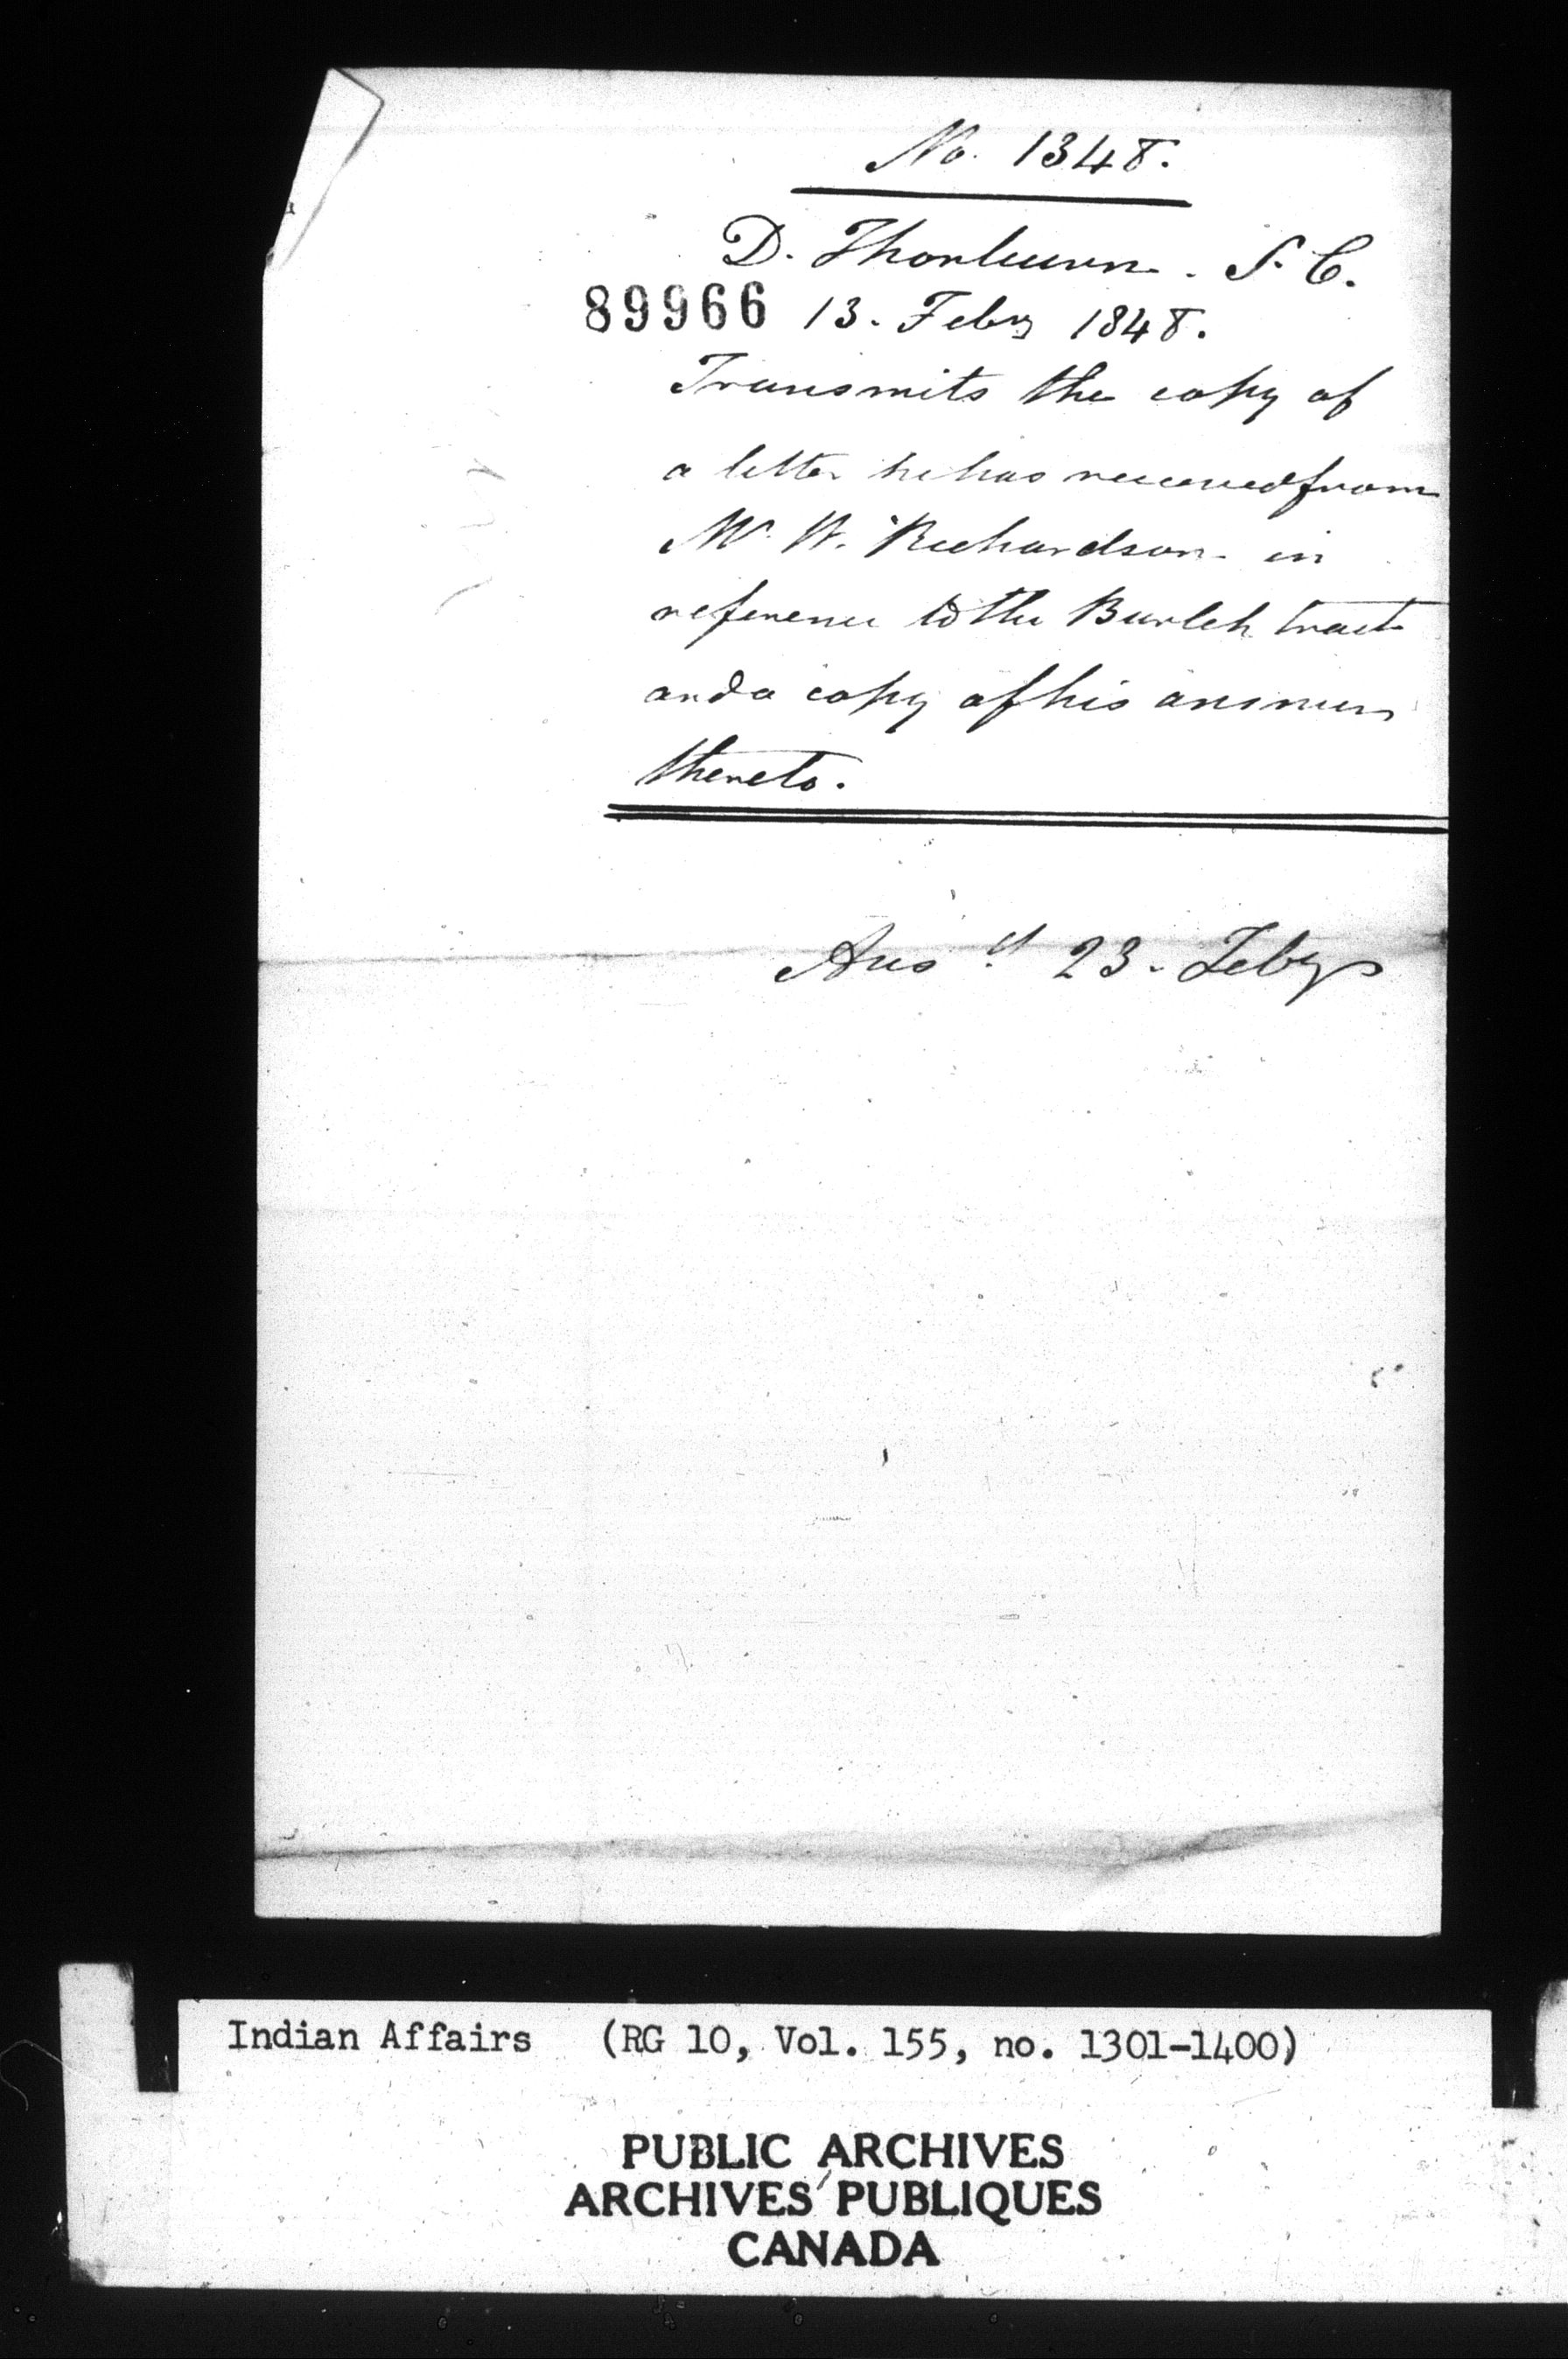 No. 1348.
D. Thorburn. S. C.
89966
13. Feby 1848.
Transmits the copy of
a letter he has received from
Mr W. Richardson in
reference to the Burtch tract
and a copy of his answer
thereto.
Ansd 23. Feby
Indian Affairs (RG 10, Vol. 155, no. 1301-1400)
PUBLIC ARCHIVES
ARCHIVES PUBLIQUES
CANADA